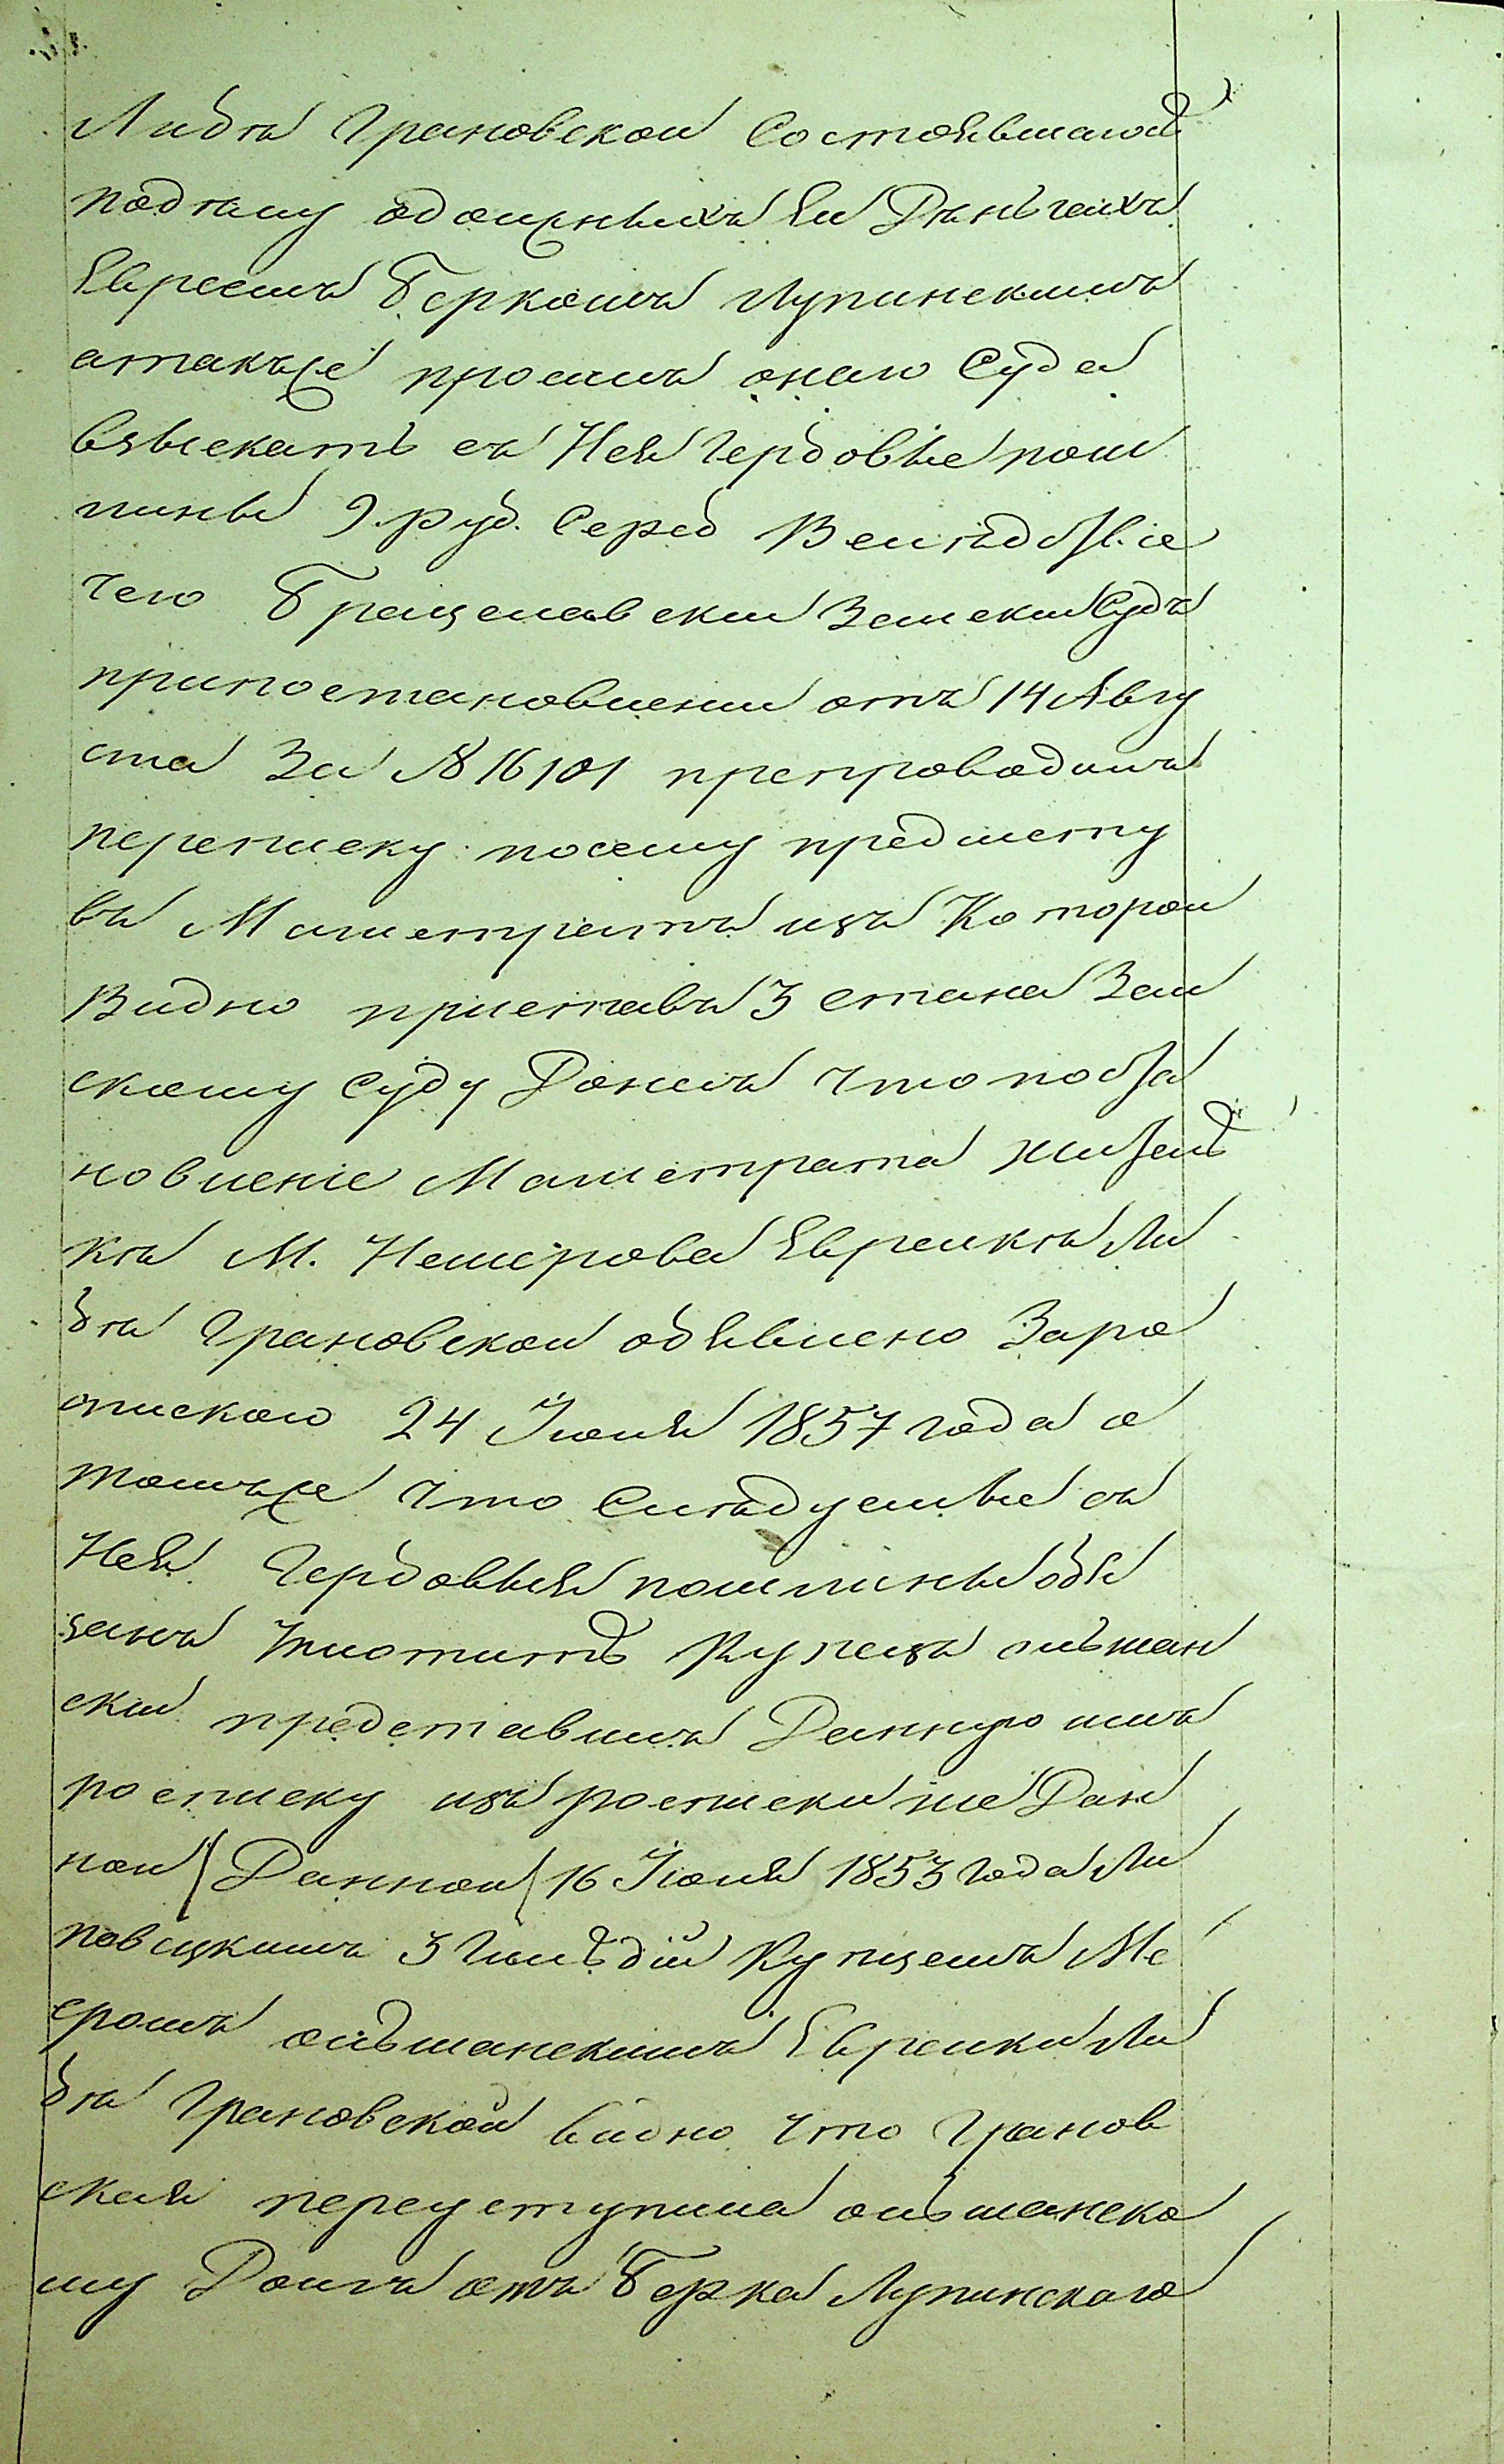 Либѣ Грановской состоявшагося
поделу одолжныхъ ей Деньгахъ
Евреемъ Беркомъ Лупинскимъ
атакъже просилъ оной Судъ
взыскать съ Нея гербовые пош
лины 9 руб. Сереб Вслѣдствіе
чего Брацлавскій Земскій Судъ
припостановленіи отъ 14 Авгу
ста За № 16101 препроводилъ
переписку посему предмету
въ Магистратъ изъ Которой
Видно приставъ 3 стана Зем
скому Суду Донесъ что поста
новленіе Магистрата жителъ
кѣ М. Немирова Еврейкѣ Ли
бѣ Грановской обявлено Заро
спискою 24 Іюля 1857 года о
томъже что Слѣдуемые съ
Нея Гербовыя пошлины обя
занъ уплотить Купецъ ольшан
скій представилъ Данную имъ
росписку изъ росписки же Дан
ной (Данной) 16 Іюля 1853 года Ли
повецкимъ 3 Гильдіи Купцемъ Ме
еромъ ольшанскимъ Еврейки Ли
бѣ Грановской видно что Гранов
ская переуступила ольшанско
му Долгъ отъ Берка Лупинскаго